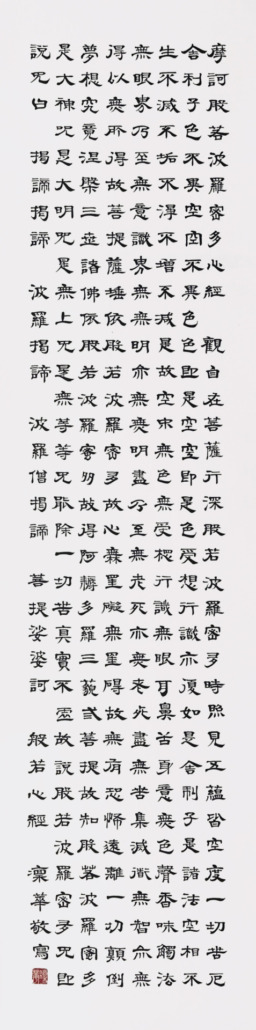 摩訶般若波羅蜜多心經 觀自在菩薩行深般若波羅蜜多時照見五蘊皆空度一切苦厄
舍利子色不異空空不異色色即是空空即是色受想行識亦復如是舍利子是諸法空相不
生不滅不垢不淨不增不減是故空中無色無受想行識無眼耳鼻舌身意無色聲香味觸法
無眼界乃至無意識界無無明亦無無明盡乃至無老死亦無老死盡無苦集滅道無智亦無
得以無所得故菩提薩埵依般若波羅蜜多故心無罣礙無罣礙故無有恐怖遠離一切顛倒
夢想究竟涅槃三世諸佛依般若波羅蜜多故得阿耨多羅三藐弎菩提故知般若波羅蜜多
是大神咒是大明咒是無上咒是無等等咒能除一切苦真實不虛故說般若波羅蜜多咒即
說咒曰 揭諦揭諦 波羅揭諦 波羅僧揭諦 菩提娑婆訶 般若心經 凜華敬寫